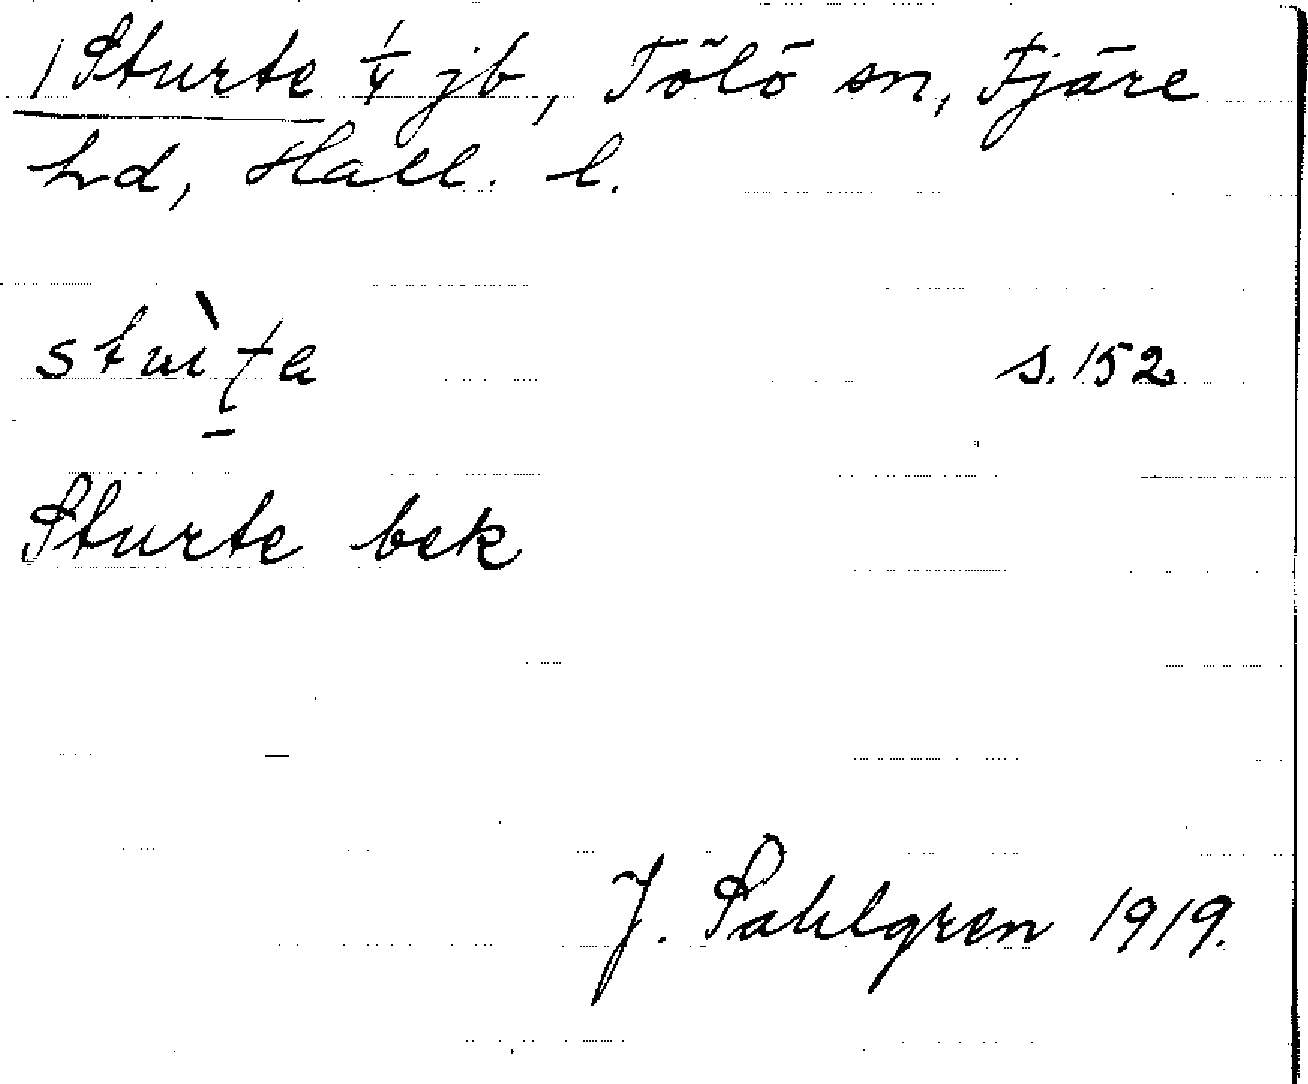 / Sturte 1/4 jb, Tölö sn, Fjäre
hd, Hall. l.
s. 152
Sturte bek
J. Sahlgren 1919.